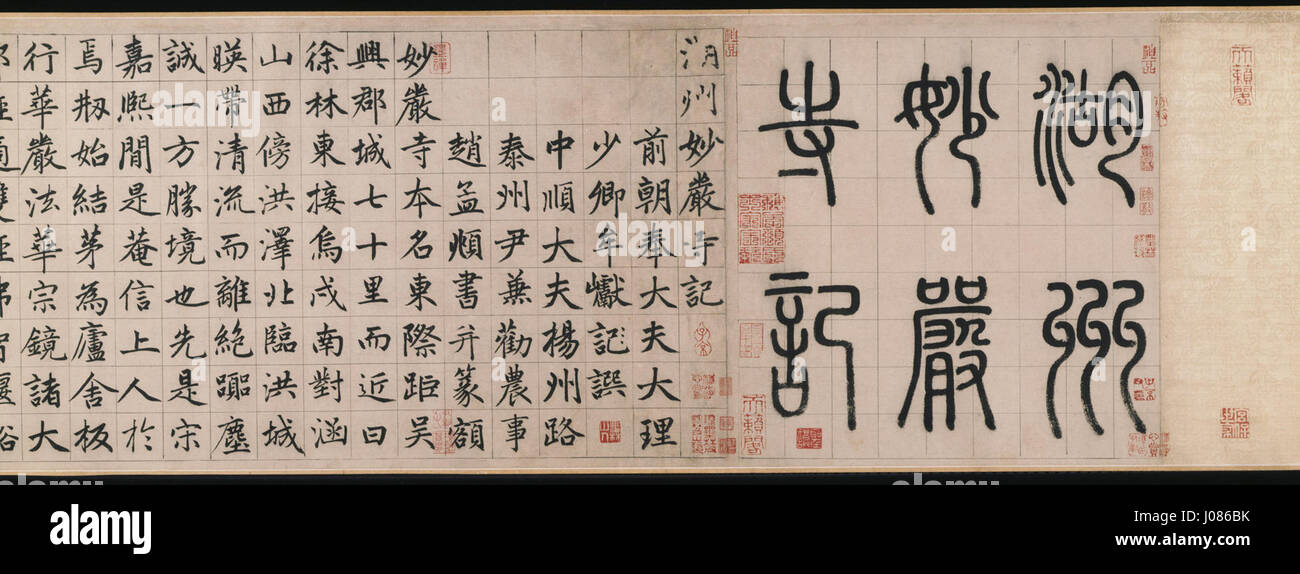 天籟閣
湖州
妙嚴
寺記
天籟閣
湖州妙嚴寺記
前朝奉大夫大理
少卿牟巘記譔
中順大夫楊州路
泰州尹兼勸農事
趙孟頫書并篆額
妙嚴寺本名東際距吳
興郡城七十里而近曰
徐林東接烏戍南對涵
山西傍洪澤北臨洪城
暎帶清流而離絶嚻塵
誠一方勝境也先是宋
嘉熈間是菴信上人於
焉剙始結茅為廬舍板
行華嚴法華宗鏡諸大
alamy
Image ID: J086BK
www.alamy.com